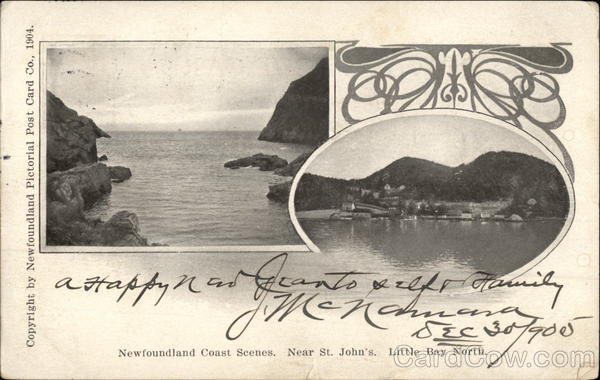 Copyright by Newfoundland Pictorial Post Card Co., 1904.
a Happy New Year to self & Family
J McNamara
Dec 30/905
Newfoundland Coast Scenes. Near St. John's. Little Bay North.
CardCow.com